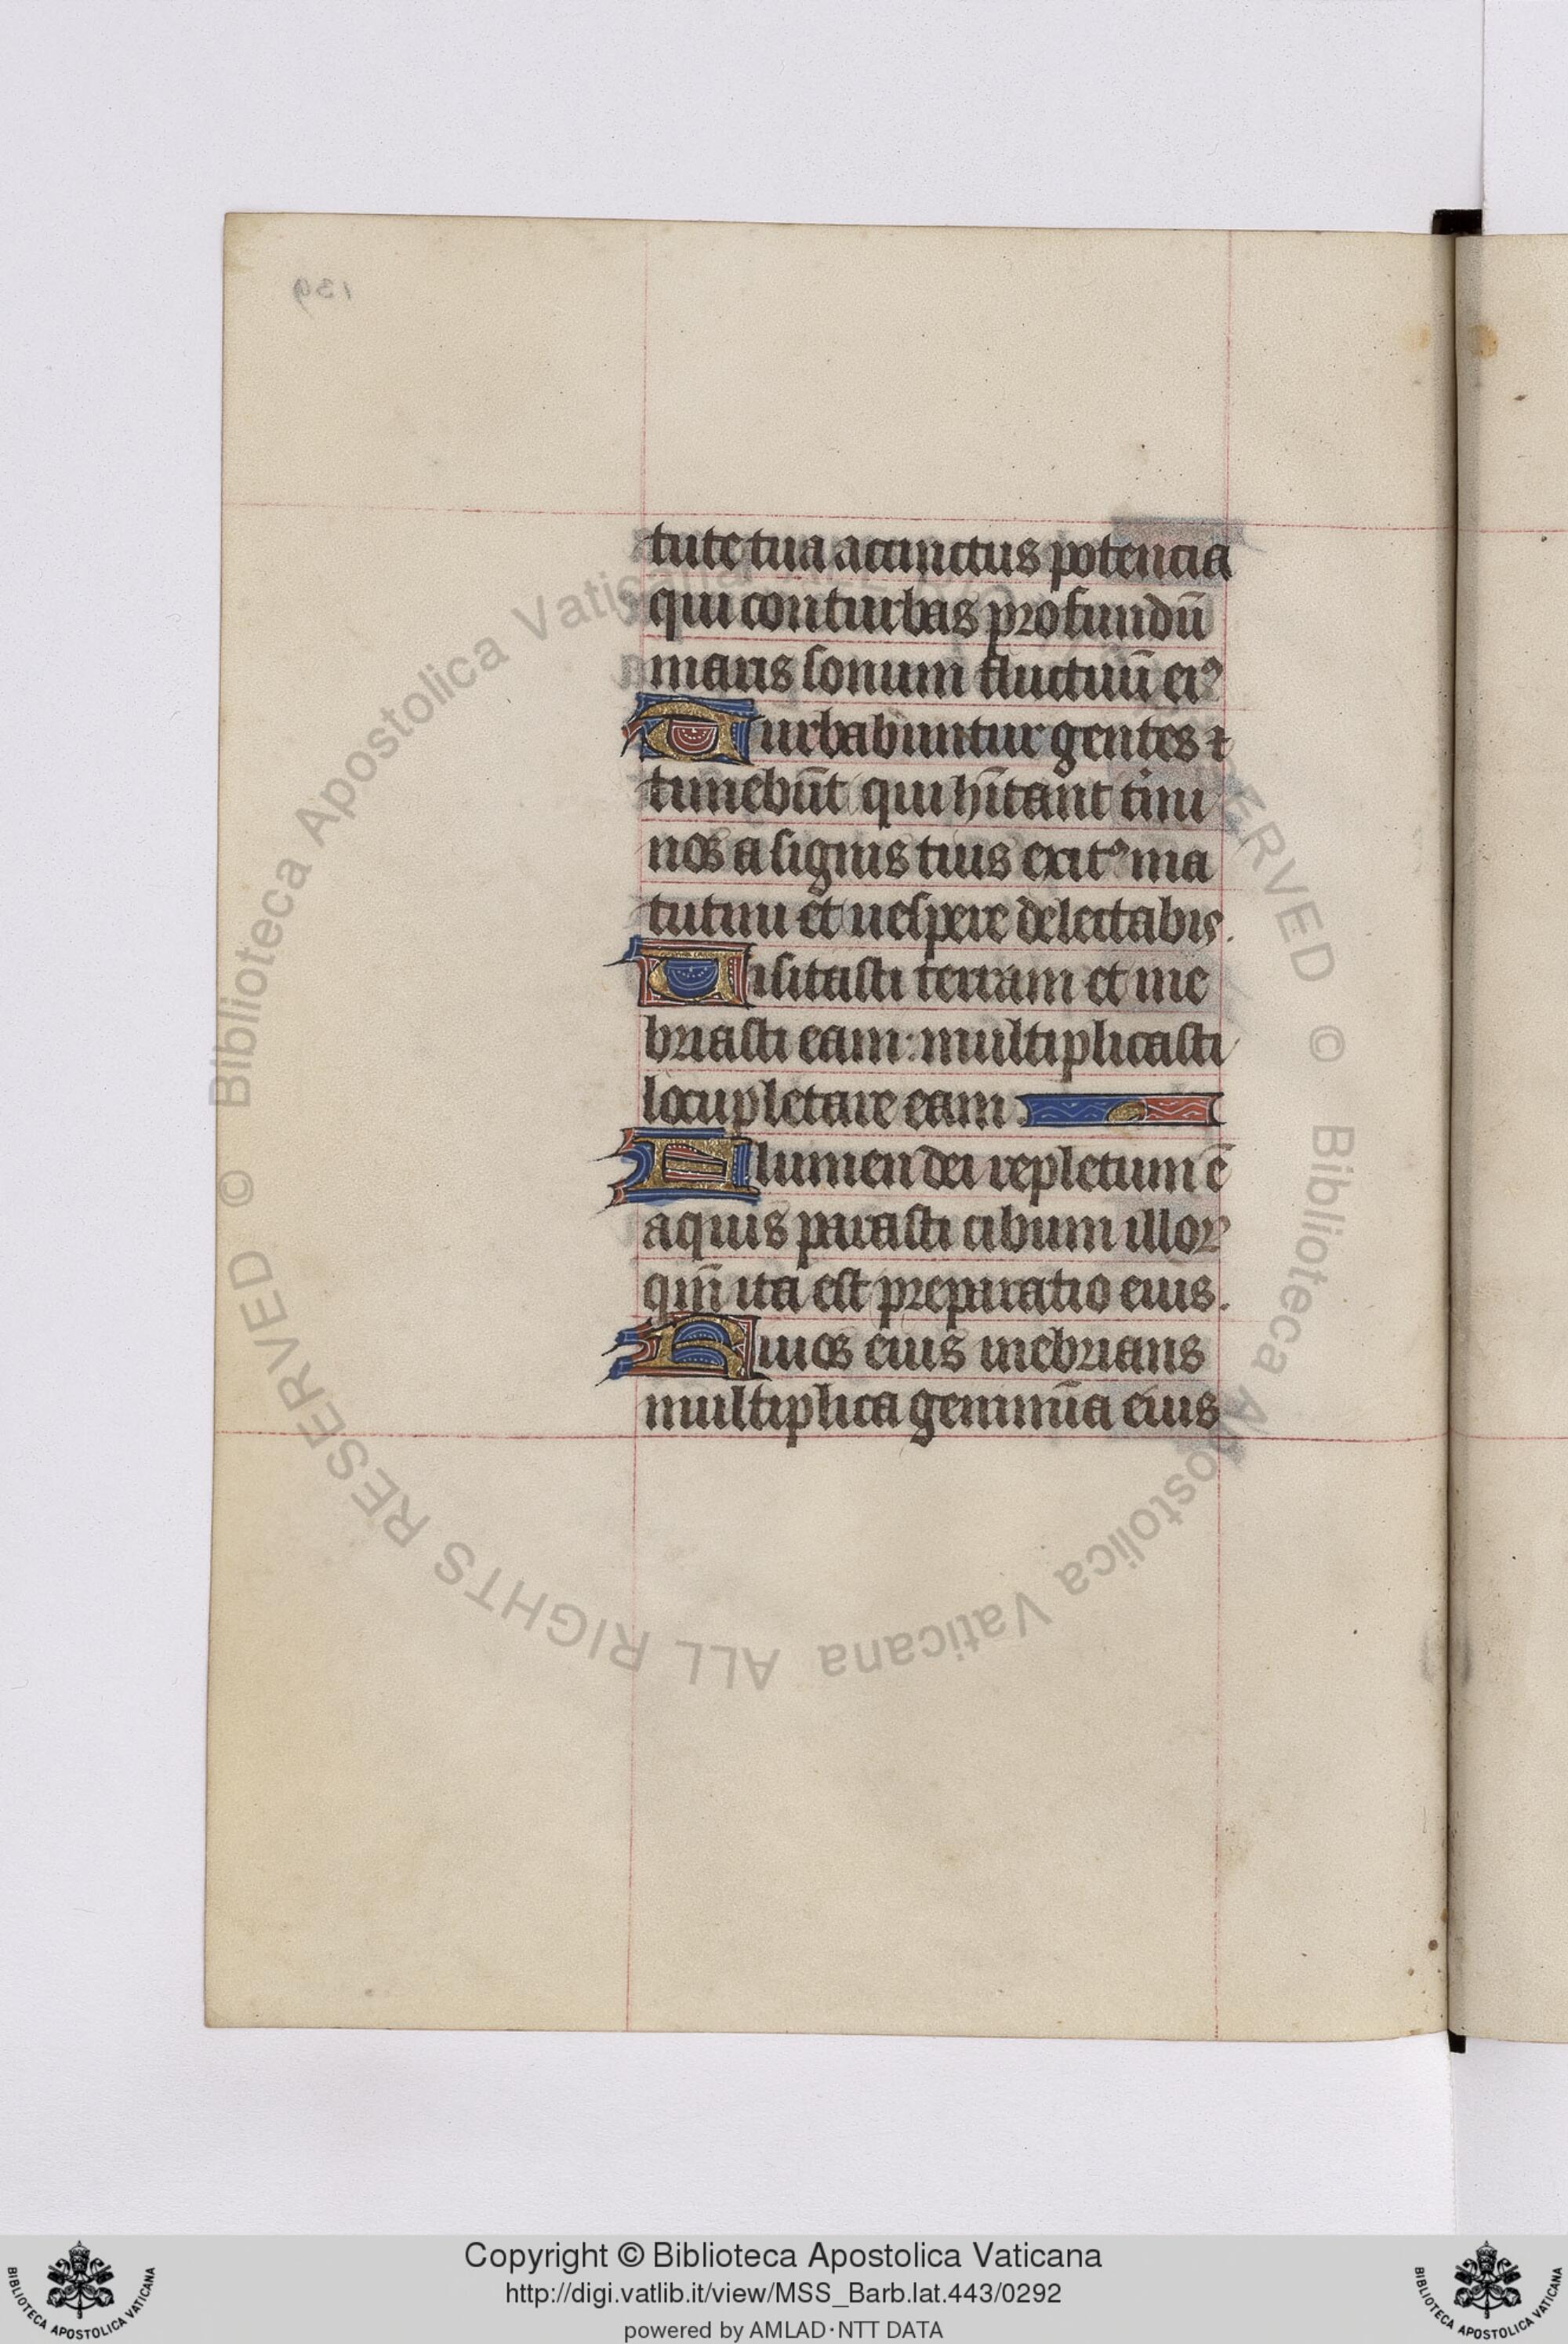 139
tute tua accinctus potencia
qui conturbas profundū
maris sonum fluctuū eiꝰ
Turbabuntur gentes ⁊
timebūt qui hītant tīni
nos a signis tuis exitꝰ ma
tutini et uespere delectabis.
Uisitasti terram et ine
briasti eam: multiplicasti
locupletare eam
Flumen dei repletum ē
aquis parasti cibum illoꝝ
qm̄ ita est preparatio eius.
Riuos eius inebrians
multiplica genimīa eius
© Biblioteca Apostolica Vaticana ALL RIGHTS RESERVED © Biblioteca Apostolica Vaticana ALL RIGHTS RESERVED
Copyright © Biblioteca Apostolica Vaticana
http://digi.vatlib.it/view/MSS_Barb.lat.443/0292
powered by AMLAD·NTT DATA
BIBLIOTECA APOSTOLICA VATICANA
BIBLIOTECA APOSTOLICA VATICANA